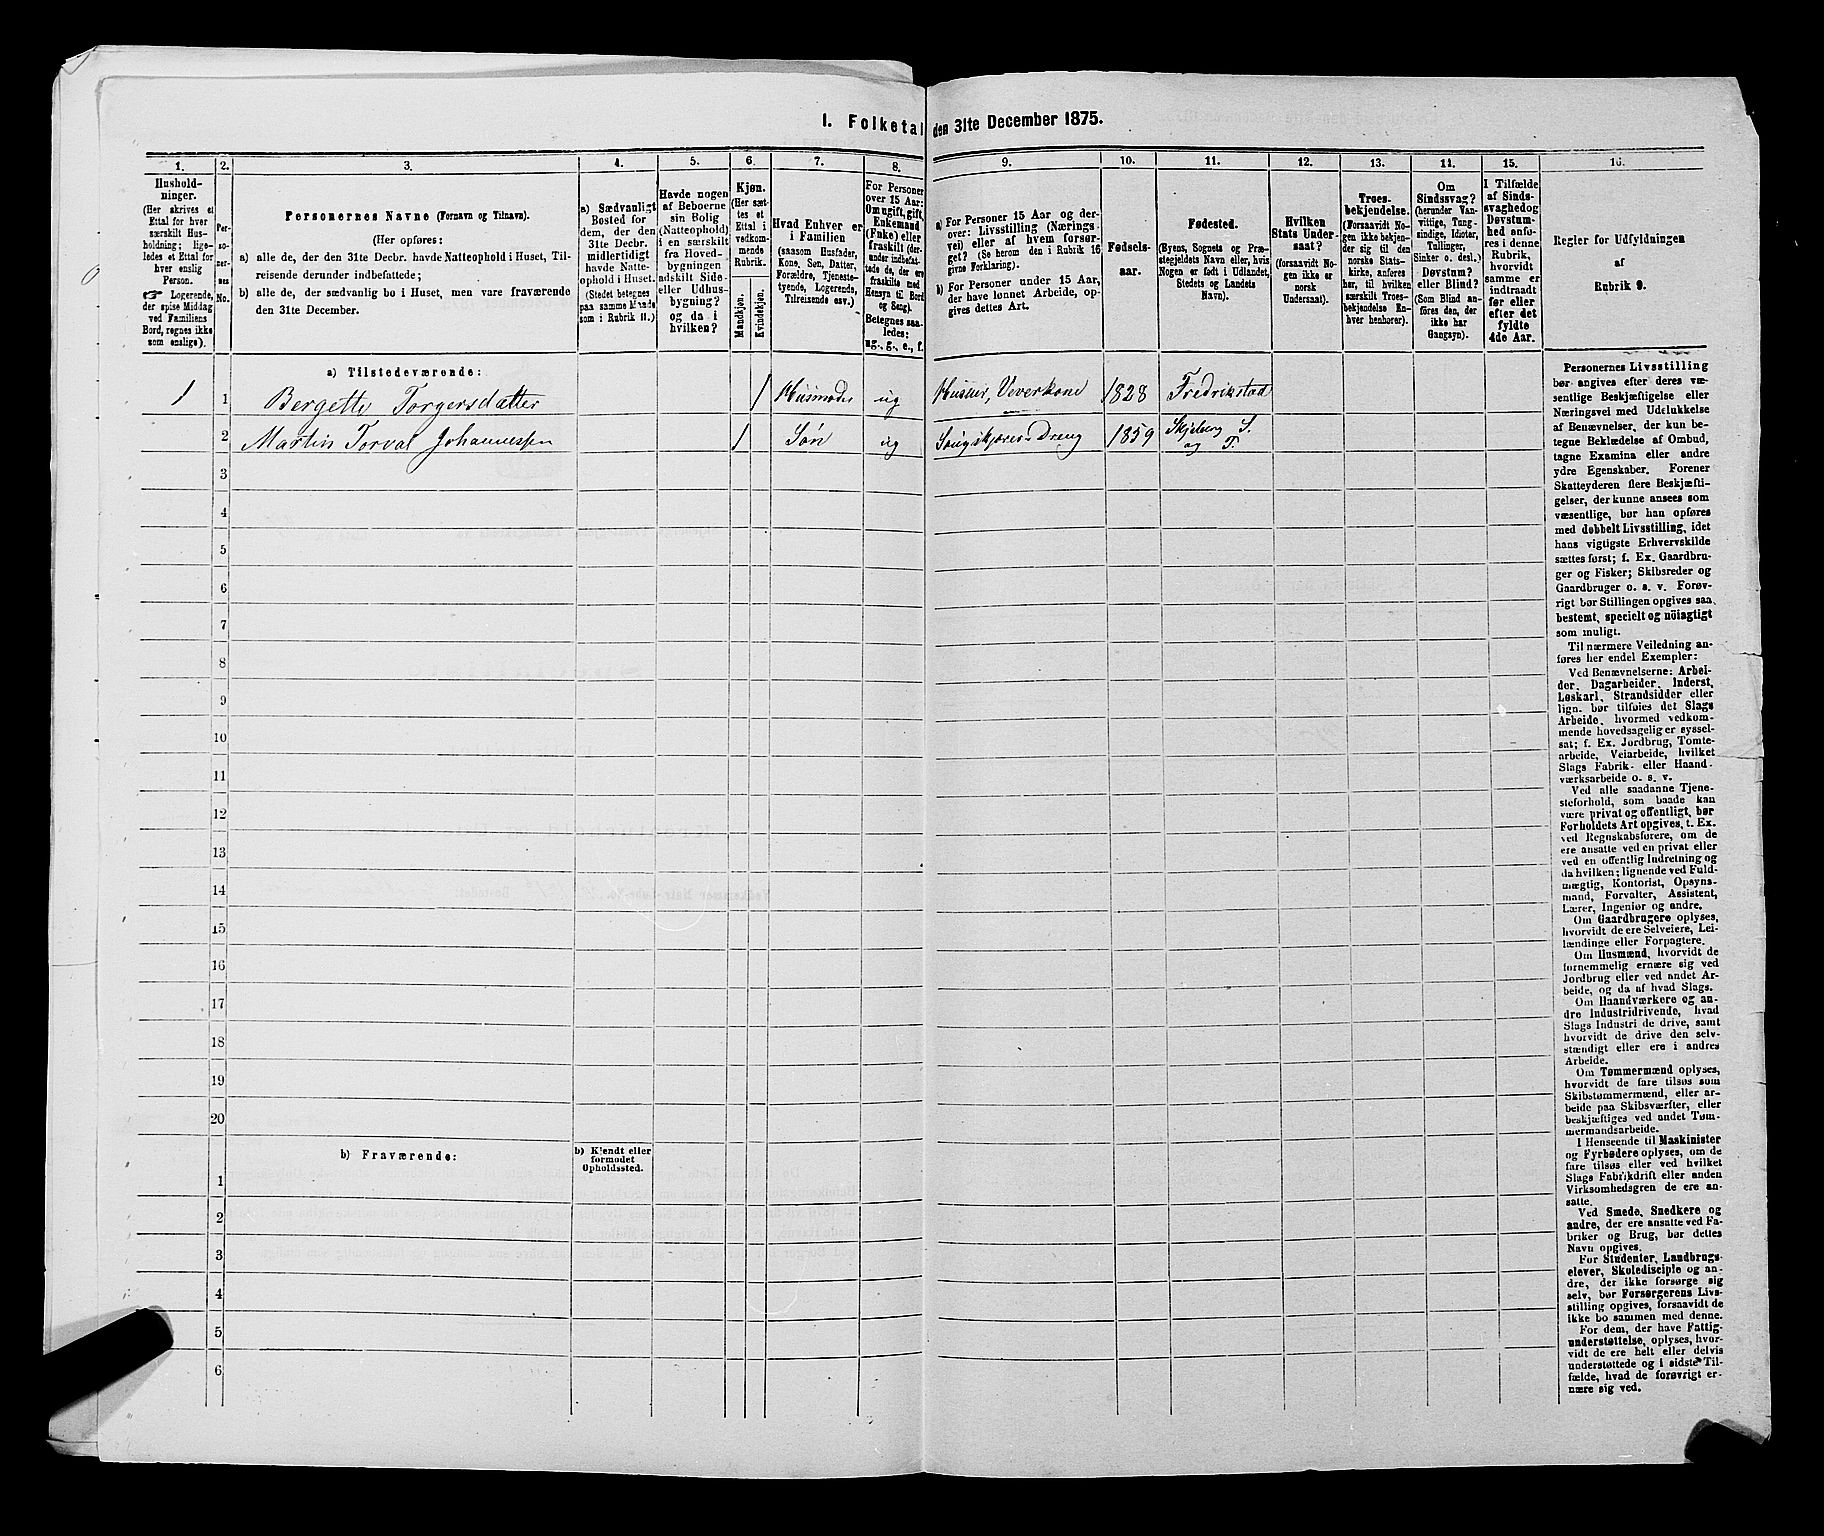 1. Folketal den 31te December 1875.
1. 2. 3. 4. 5. 6. 7. 8. 9. 10. 11. 12. 13. 14. 15. 16.
Hushold-
ninger.
(Her skrives et
Ettal for hver
særskilt Hus-
holdning; lige-
ledes et Ettal for
hver enslig
Person.
☞ Logerende,
der spise Middag
ved Familiens
Bord, regnes ikke
som enslige).
Per-
so-
ner-
nes
No.
Personernes Navne (Fornavn og Tilnavn).
(Her opføres:
a) alle de, der den 31te Decbr. havde Natteophold i Huset, Til-
reisende derunder indbefattede;
b) alle de, der sædvanlig bo i Huset, men vare fraværende
den 31te December.
a) Sædvanligt
Bosted for
dem, der den
31te Decbr.
midlertidigt
havde Natte-
ophold i Huset.
(Stedet betegnes
paa samme Maade
som i Rubrik 11.)
Havde nogen
af Beboerne
sin Bolig
(Natteophold)
i en særskilt
fra Hoved-
bygningen
adskilt Side-
eller Udhus-
bygning?
og da i
hvilken?
Kjøn.
(Her sæt-
tes et
Ettal i
vedkom-
mende
Rubrik.
Mandkjøn.
Kvindekjøn.
Hvad Enhver er
i Familien
(saasom Husfader,
Kone, Søn, Datter,
Forældre, Tjeneste-
tyende, Logerende,
Tilreisende osv.)
For Personer
over 15 Aar:
Om ugift, gift,
Enkemand
(Enke) eller
fraskilt (der-
under indbefat-
tede de, der ere
fraskilte med
Hensyn til Bord
og Seng).
Betegnes saa-
ledes:
ug., g., e., f.
a) For Personer 15 Aar og der-
over: Livsstilling (Nærings-
vei) eller af hvem forsør-
get? (Se herom den i Rubrik 16
givne Forklaring).
b) For Personer under 15 Aar,
der have lønnet Arbeide, op-
gives dettes Art.
Fødsels-
aar.
Fødested.
(Byens, Sognets og Præ-
stegjeldets Navn eller, hvis
Nogen er født i Udlandet,
Stedets og Landets
Navn).
Hvilken
Stats Under-
saat?
(forsaavidt No-
gen ikke er
norsk
Undersaat).
Troes-
bekjendelse.
(Forsaavidt No-
gen ikke bekjen-
der sig til den
norske Stats-
kirke, anføres
her, til hvilken
særskilt Troes-
bekjendelse En-
hver henhører).
Om
Sindssvag?
(herunder Van-
vittige, Tung-
sindige, Idioter,
Tullinger,
Sinker o. desl.)
Døvstum?
eller Blind?
(Som Blind an-
føres den, der
ikke har
Gangsyn).
I Tilfælde
af Sinds-
svaghed og
Døvstum-
hed anfø-
res i denne
Rubrik,
hvorvidt
samme er
indtraadt
før eller
efter det
fyldte
4de Aar.
Regler for Udfyldningen
af
Rubrik 9.
a) Tilstedeværende:
1 1 Bergette Torgersdatter 1 Husmoder ug Huseier, Væverkone 1828 Fredrikstad
2 Martin Torval Johannessen 1 Søn ug Dreng 1859 Skjeberg S.
og P.
3
4
5
6
7
8
9
10
11
12
13
14
15
16
17
18
19
20
b) Fraværende:
b) Kjendt eller
formodet
Opholdssted.
1
2
3
4
5
6
Personernes Livsstilling
bør angives efter deres væ-
sentlige Beskjæftigelse eller
Næringsvei med Udelukkelse
af Benævnelser, der kun be-
tegne Beklædelse af Ombud,
tagne Examina eller andre
ydre Egenskaber. Forener
Skatteyderen flere Beskjæfti-
gelser, der kunne ansees som
væsentlige, bør han opføres
med dobbelt Livsstilling, idet
hans vigtigste Erhvervskilde
sættes først; f. Ex. Gaardbru-
ger og Fisker; Skibsreder og
Gaardbruger o. s. v. Forøv-
rigt bør Stillingen opgives saa
bestemt, specielt og nöiagtigt
som muligt.
Til nærmere Veiledning an-
føres her endel Exempler:
Ved Benævnelserne: Arbei-
der, Dagarbeider, Inderst,
Løskarl, Strandsidder eller
lign. bør tilføies det Slags
Arbeide, hvormed vedkom-
mende hovedsagelig er syssel-
sat; f. Ex. Jordbrug, Tomte-
arbeide, Veiarbeide, hvilket
Slags Fabrik- eller Haand-
værksarbeide o. s. v.
Ved alle saadanne Tjene-
steforhold, som baade kan
være privat og offentligt, bør
Forholdets Art opgives, t. Ex.
ved Regnskabsførere, om de
ere ansatte ved en privat eller
ved en offentlig Indretning og
da hvilken; lignende ved Fuld-
mægtig, Kontorist, Opsyns-
mand, Forvalter, Assistent,
Lærer, Ingeniør og andre.
Om Gaardbrugere oplyses,
hvorvidt de ere Selveiere, Lei-
lændinge eller Forpagtere.
Om Husmænd, hvorvidt de
fornemmelig ernære sig ved
Jordbrug eller ved andet Ar-
beide, og da af hvad Slags.
Om Haandværkere og an-
dre Industridrivende, hvad
Slags Industri de drive, samt
hvorvidt de drive den selv-
stændigt eller ere i andres
Arbeide.
Om Tømmermænd oplyses,
hvorvidt de fare tilsøs som
Skibstømmermænd, eller ar-
beide paa Skibsværfter, eller
beskjæftiges ved andet Tøm-
mermandsarbeide.
I Henseende til Maskinister
og Fyrbødere oplyses, om de
fare tilsøs eller ved hvilket
Slags Fabrikdrift eller anden
Virksomhedsgren de ere an-
satte.
Ved Smede, Snedkere og
andre, der ere ansatte ved Fa-
briker og Brug, bør dettes
Navn opgives.
For Studenter, Landbrugs-
elever, Skoledisciple og an-
dre, der ikke forsørge sig
selv, bør Forsørgerens Livs-
stilling opgives, forsaavidt de
ikke bo sammen med denne.
For dem, der have Fattig-
understøttelse, oplyses, hvor-
vidt de ere helt eller delvis
understøttede og i sidste Til-
fælde, hvad de forøvrigt er-
nære sig ved.